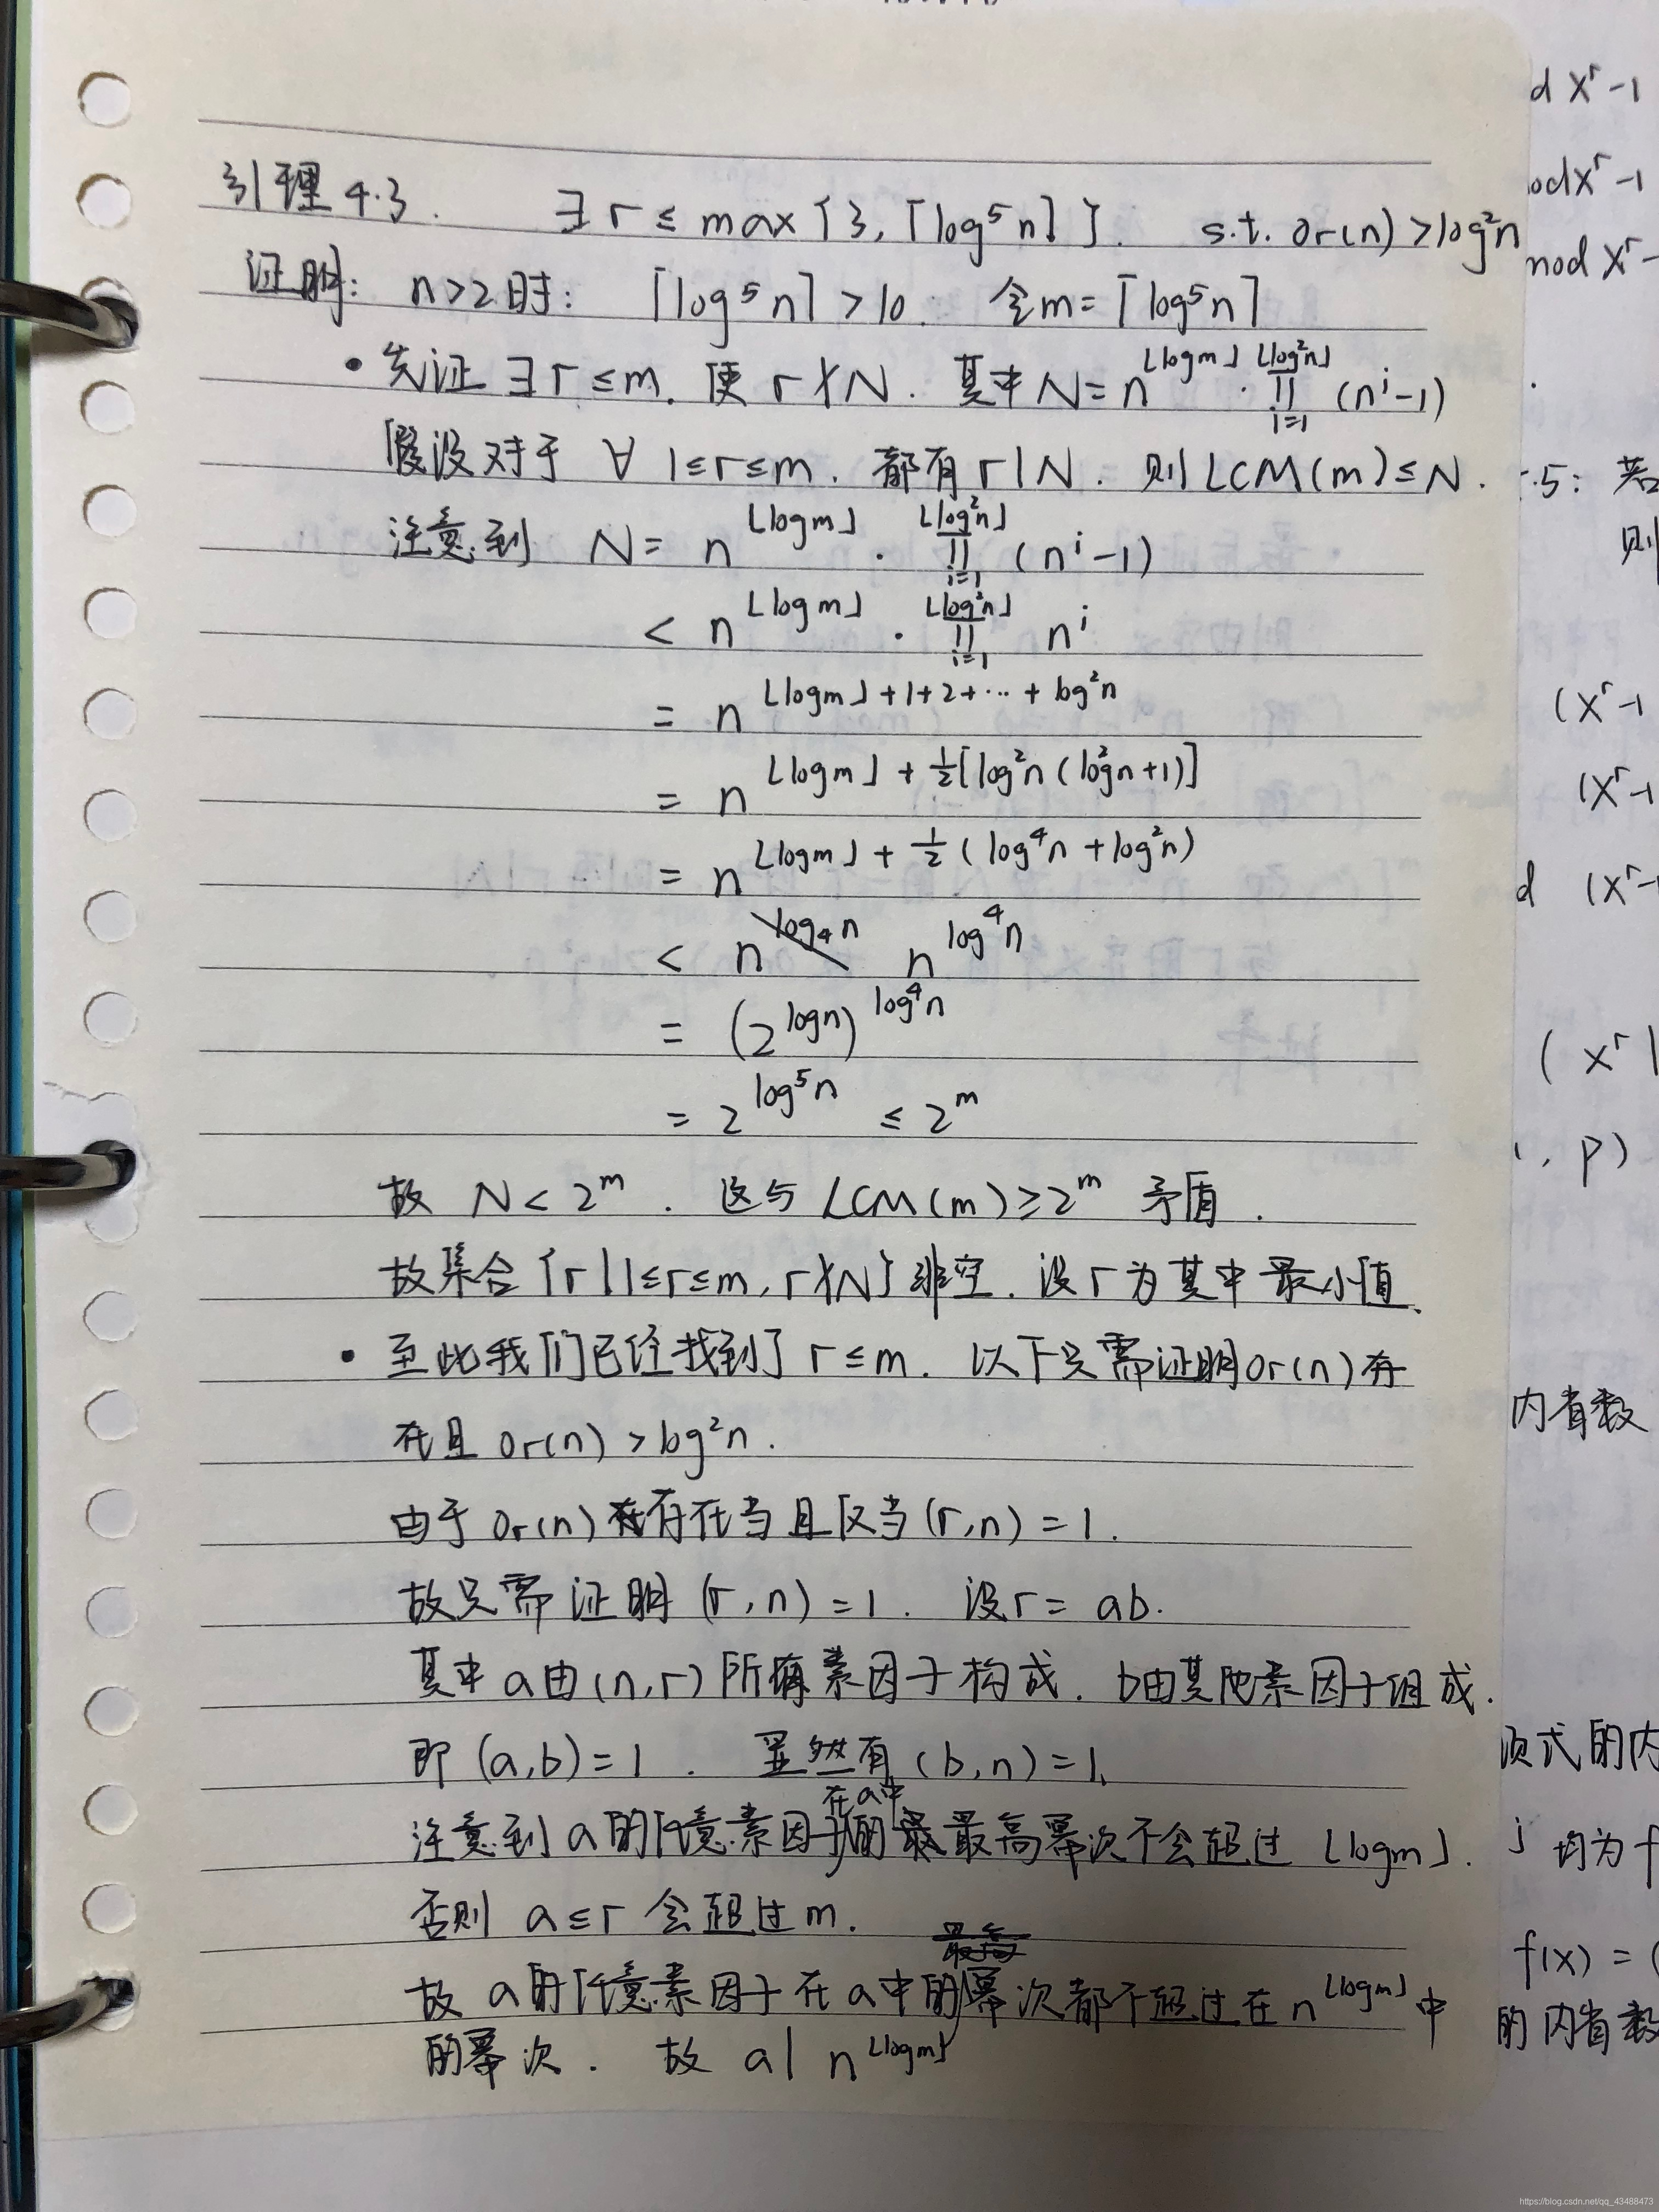 引理4.3. ∃ r ≤ max{3, ⌈log⁵n⌉}. s.t. Or(n) > log²n
证明: n>2时: ⌈log⁵n⌉ > 10. 令m = ⌈log⁵n⌉
• 先证 ∃ r ≤ m. 使 r∤N. 其中N = n^⌊logm⌋ · ∏_{i=1}^{⌊log²n⌋} (nⁱ-1)
假设对于 ∀ 1≤r≤m. 都有 r|N. 则LCM(m) ≤ N.
注意到 N = n^⌊logm⌋ · ∏_{i=1}^{⌊log²n⌋} (nⁱ-1)
< n^⌊logm⌋ · ∏_{i=1}^{⌊log²n⌋} nⁱ
= n^{⌊logm⌋+1+2+…+log²n}
= n^{⌊logm⌋ + ½[log²n(log²n+1)]}
= n^{⌊logm⌋ + ½(log⁴n + log²n)}
< n^{log⁴n}
= (2^{logn})^{log⁴n}
= 2^{log⁵n} ≤ 2^m
故 N < 2^m. 这与 LCM(m) ≥ 2^m 矛盾.
故集合{r|1≤r≤m, r∤N}非空. 设r为其中最小值.
• 至此我们已经找到了 r≤m. 以下只需证明Or(n)存
在且 Or(n) > log²n.
由于 Or(n) 存在当且仅当 (r,n) = 1.
故只需证明 (r,n) = 1. 设r = ab.
其中a由(n,r)所有素因子构成. b由其他素因子组成.
即 (a,b)=1. 显然有 (b,n)=1.
注意到a的任意素因子在a中的最高幂次不会超过 ⌊logm⌋.
否则 a≤r 会超过m.
故 a的任意素因子在a中的幂次都不超过在n^⌊logm⌋中
的幂次. 故 a| n^⌊logm⌋
d Xʳ-1
odXʳ-1
mod Xʳ-
.5: 若
则
(Xʳ-1
(Xʳ-1
d (Xʳ-
( Xʳ
, p)
内省数
项式的内
j 均为f
f(x) = (
的内省数
https://blog.csdn.net/qq_43488473